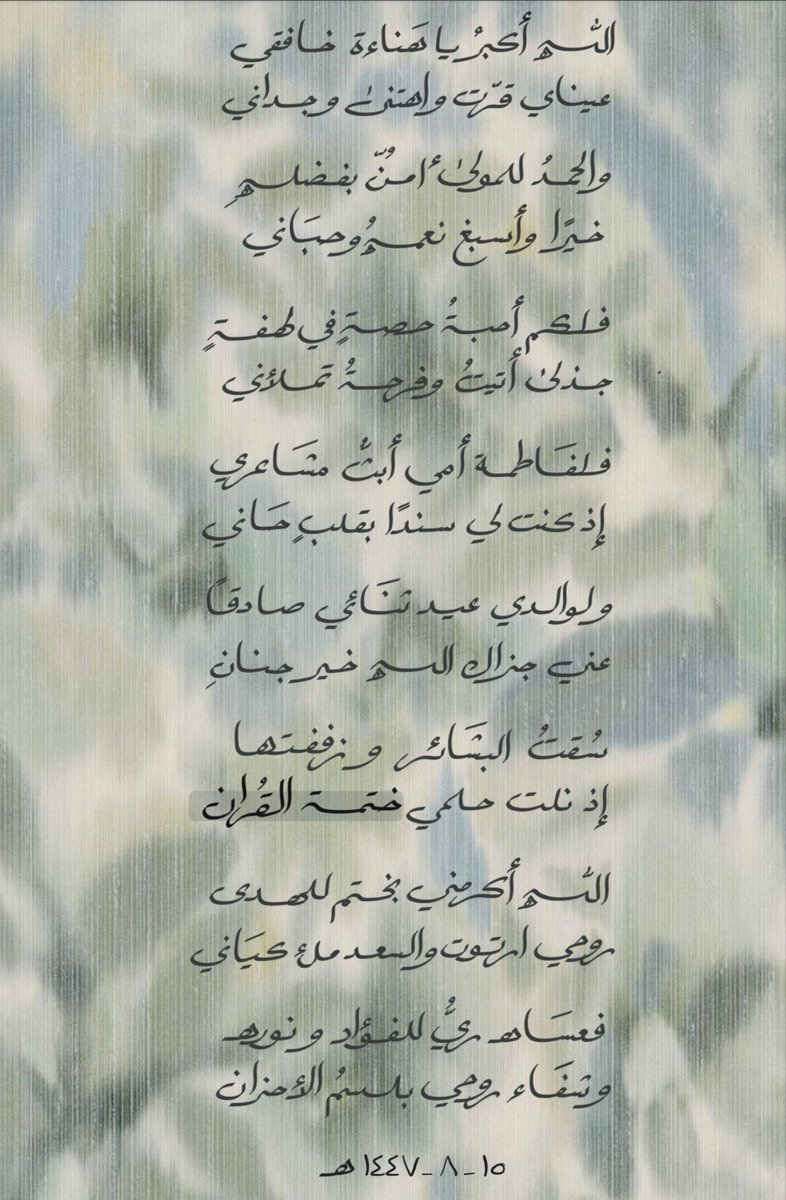 الله أكبرُ يا هَناءة خافقي
عيناي قرّت واهتنىٰ وجداني
والحمدُ للمولىٰ امنُّ بفضلهِ
خيرًا وأسبغ نعمهُ وحبَاني
فلكم أحبةُ حصةٍ في لهفةٍ
جذلىٰ أتيتُ وفرحةُ تملأني
فلفَاطمة أمي أبثُّ مشَاعري
إذ كنت لي سندًا بقلبٍ حَاني
ولوالدي عيد ثنَائي صادقًا
عني جزاك الله خير جنانِ
سُقتُ البشَائر وزففتها
إذ نلت حلمي ختمة القُران
الله أكرمني بختم للهدى
روحي ارتوت والسعد ملء كيَاني
فعسَاه ريُّ للفؤاد ونوره
وشفَاء روحي بلسمُ الأحزان
١٥-٨-١٤٤٧ هـ